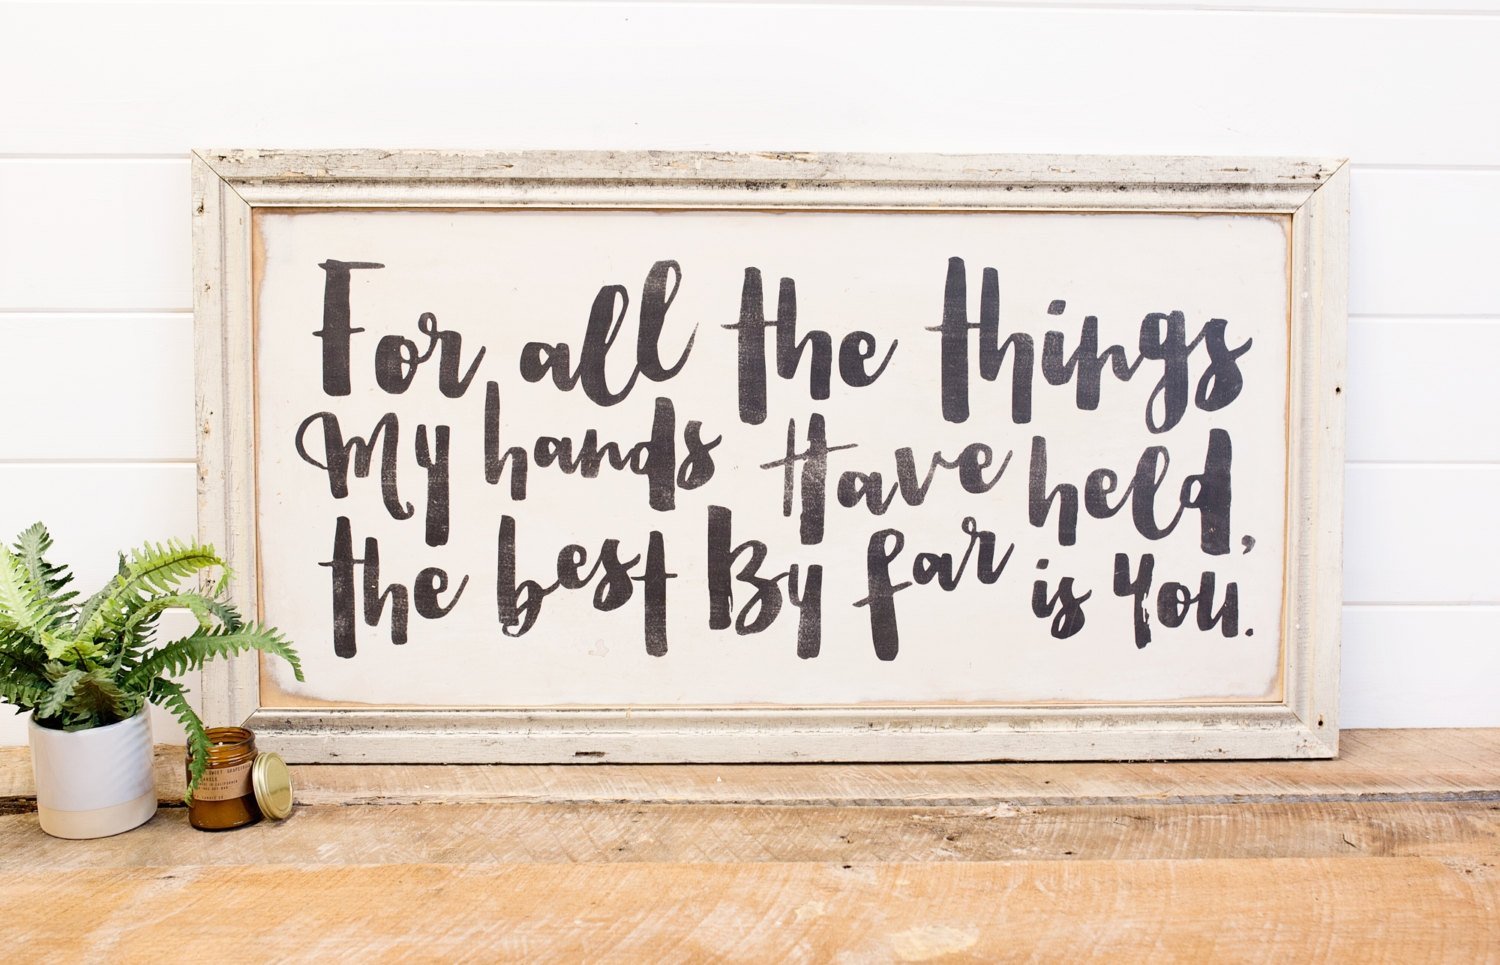 For all the things
My hands Have held,
the best By far is You.
SWEET GRAPEFRUIT